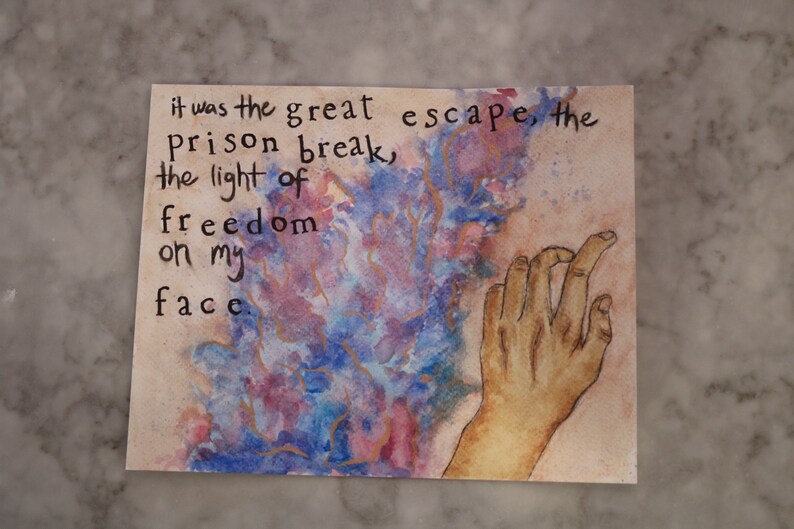 it was the great escape, the
prison break,
the light of
freedom
on my
face.